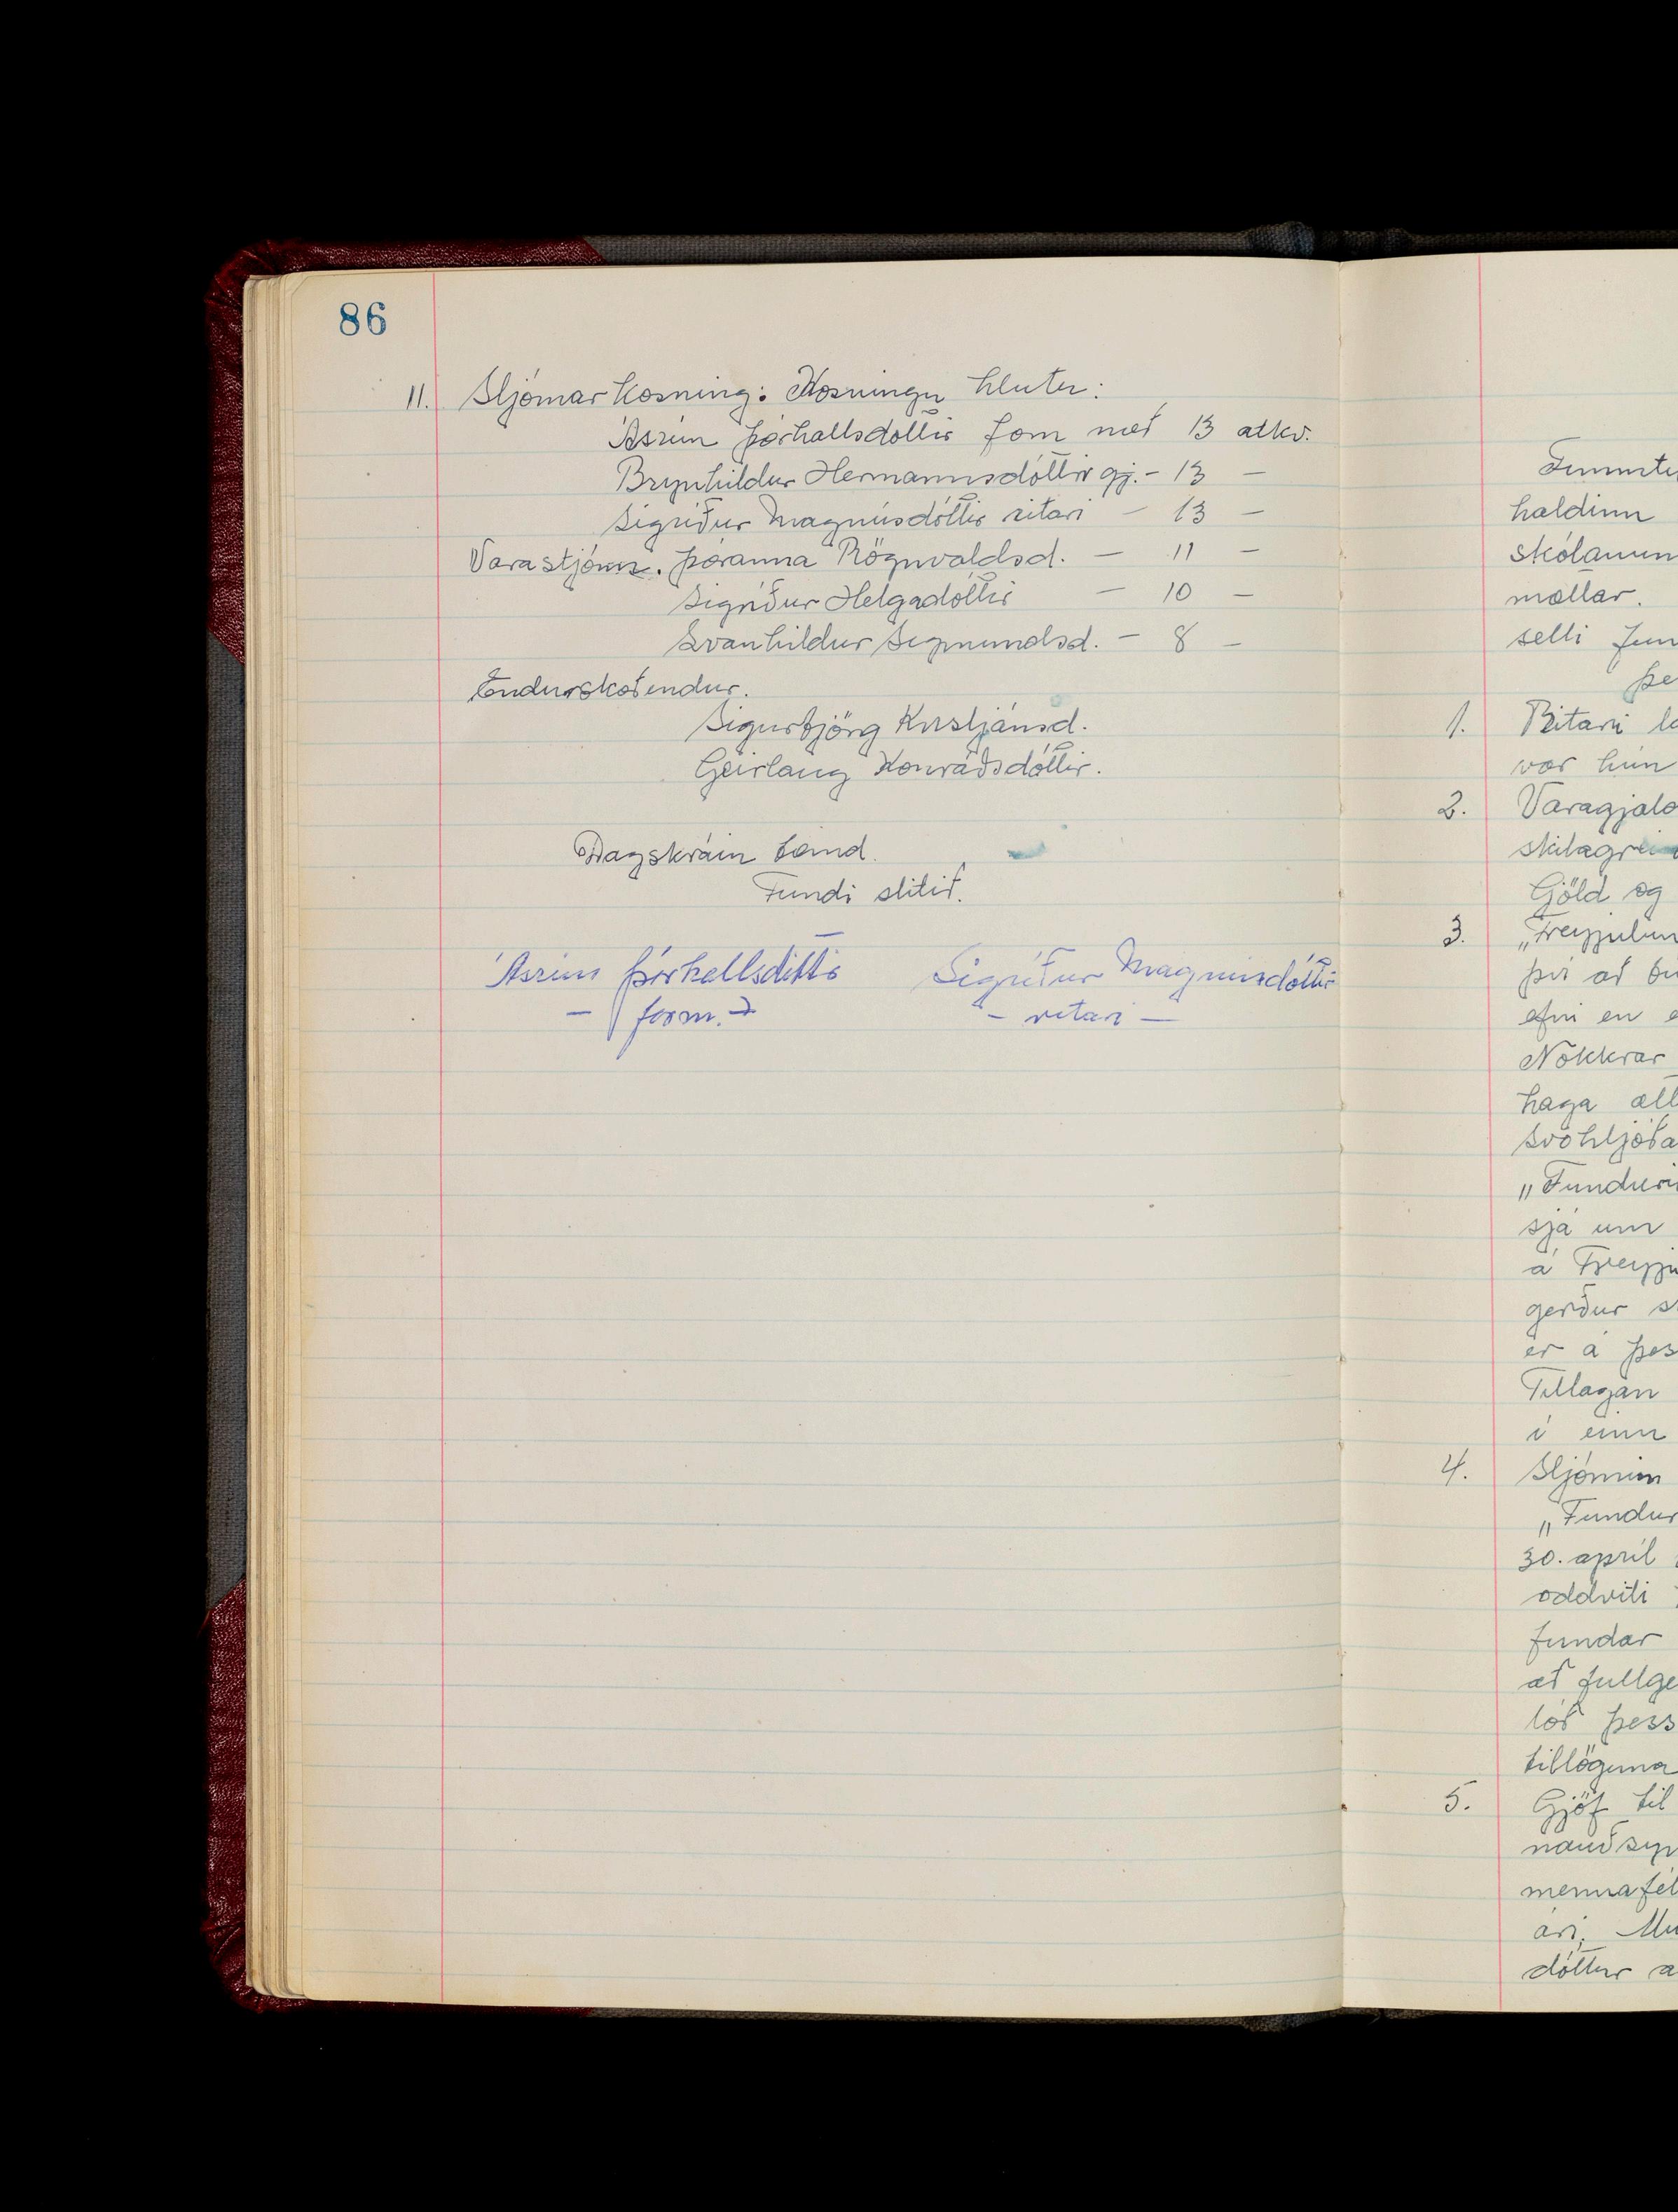 86
11. Stjórnarkosning: Kosningu hlutu:
Ásrún Þórhallsdóttir form með 13 atkv.
Brynhildur Hermannsdóttir gj. - 13 -
Sigríður Magnúsdóttir ritari - 13 -
Varastjórn. Þóranna Rögnvaldsd. - 11 -
Sigríður Helgadóttir - 10 -
Svanhildur Sigmundsd. - 8 -
Endurskoðendur.
Sigurbjörg Kristjánsd.
Geirlaug Konráðsdóttir.
Dagskráin tæmd.
Fundi slitið.
Ásrún Þórhallsdóttir Sigríður Magnúsdóttir
- form. - - ritari -
haldinn
skólanum
mættar.
setti
1. Ritari
var hún
2. Varagjald
Gjöld og
3.
því að
en
Nokkrar
haga
svohljóða
„Fundurin
sjá um
á
gerður
er á þes
Tillagan
í einn
4. Stjórnin
„Fundur
30. apríl
oddviti
fundar
að fullge
lóð þess
tillöguna
5. Gjöf til
nauðsyn
mennafél
ári. Mu
dóttur a